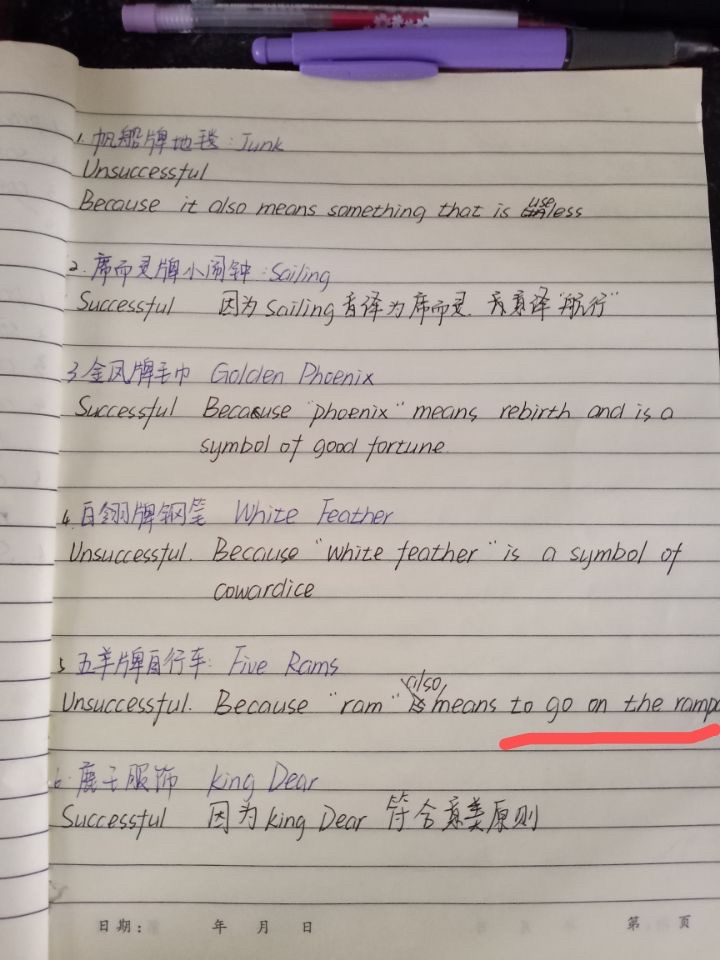 1. 帆船牌地毯: Junk
Unsuccessful
Because it also means something that is useless
2. 席而灵牌小闹钟: Sailing
Successful 因为Sailing音译为席而灵. 意译"航行"
3. 金凤牌毛巾 Golden Phoenix
Successful Because "phoenix" means rebirth and is a
symbol of good fortune.
4. 白翎牌钢笔 White Feather
Unsuccessful. Because "white feather" is a symbol of
cowardice
5 五羊牌自行车: Five Rams
Unsuccessful. Because "ram" also means to go on the
6. 鹿王服饰 King Dear
Successful 因为King Dear 符合意美原则
日期: 年 月 日 第 页